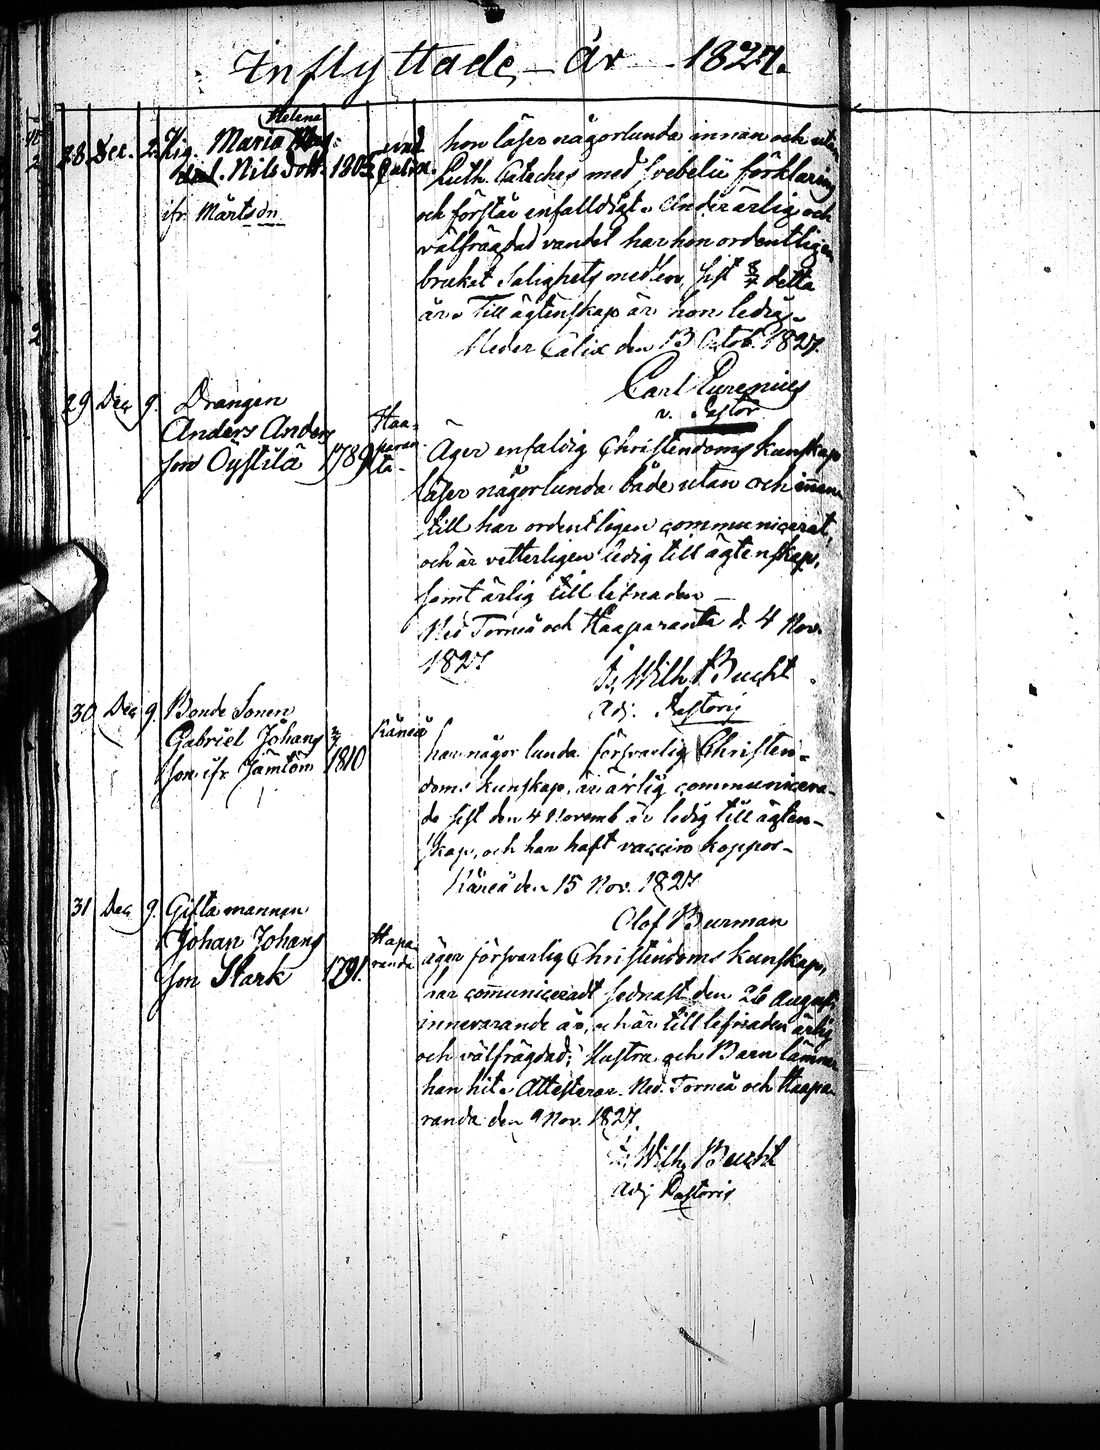 Inflyttade år 1827.
Helena
28 Dec. 2. Pig. Maria
Nils Dott. 1805
ifr Märtsön
hon läser någorlunda innan och utan
Luth. Cateches med Svebelii förklaring
och förstår enfalldigt. Under ärlig och
välfrägdad vandel har hon ordentligen
brukat Salighets medlen, sist detta
år. Till ägtenskap är hon ledig
Neder Calix den 13 Octob. 1827.
Carl Eurenius
v. Pastor
29 Dec 9. Drängen
Anders Anders
son Öystilä 1789
Haa-
paran-
ta-
Äger enfaldig Christendoms kunskap
läser någorlunda både utan och innan
till har ordentligen communicerat,
och är vetterligen ledig till ägtenskap,
samt ärlig till lefnaden
Ned Torneå och Haaparanta d. 4 Nov.
1827
Is. Wilh. Bucht
Adj. Pastoris
30 Dec 9. Bonde Sonen
Gabriel Johans
son ifr Jämtön 1810
Råneå
har någorlunda försvarlig Christen-
doms kunskap, är ärlig communicera-
de sist den 4 Novemb är ledig till ägten-
skap, och har haft vaccin koppor-
Råneå den 15 Nov. 1827
Olof Burman
31 Dec 9. Gifta mannen
Johan Johans
son Stark 1791.
Hapa
randa
äger försvarlig Christendoms kunskap,
har communiceradt sednast den 26 Augusti
innevarande år, och är till lefnaden ärlig
och välfrägdad; Hustru och Barn lämnar
han hit. Attesterar. Ned. Torneå och Haapa-
randa den 9 Nov. 1827.
Is. Wilh. Bucht
Adj Pastoris